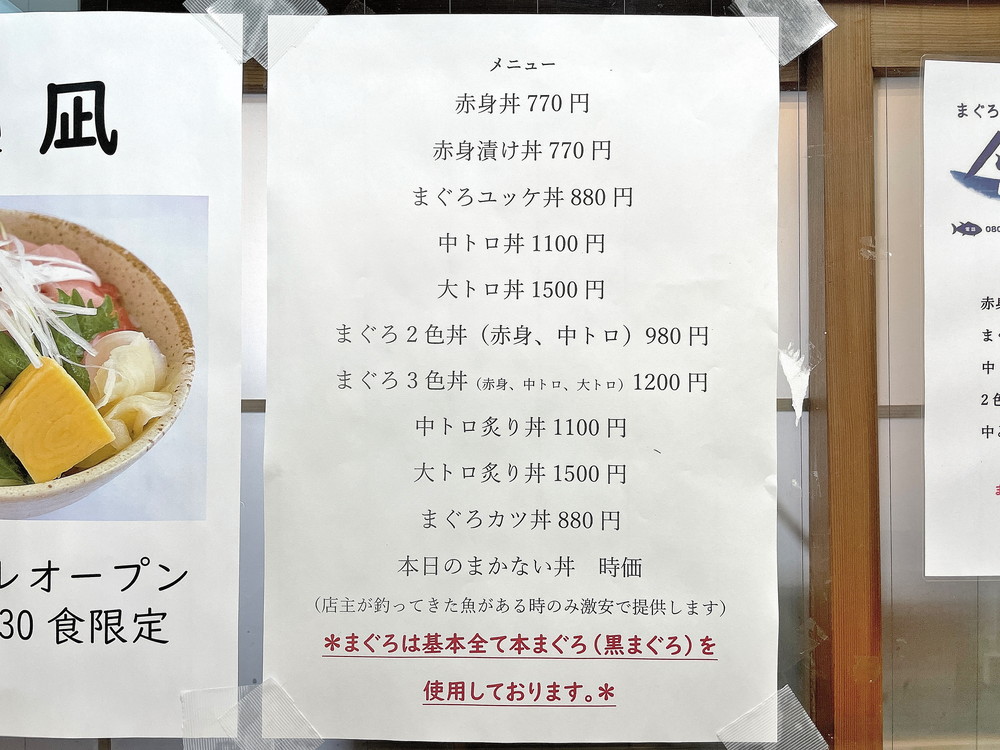 凪
レオープン
30食限定
メニュー
赤身丼 770 円
赤身漬け丼 770 円
まぐろユッケ丼 880 円
中トロ丼 1100 円
大トロ丼 1500 円
まぐろ２色丼（赤身、中トロ）980 円
まぐろ３色丼（赤身、中トロ、大トロ）1200 円
中トロ炙り丼 1100 円
大トロ炙り丼 1500 円
まぐろカツ丼 880 円
本日のまかない丼　時価
（店主が釣ってきた魚がある時のみ激安で提供します）
＊まぐろは基本全て本まぐろ（黒まぐろ）を
使用しております。＊
まぐろ
080
赤身
ま
中
2色
中
ま